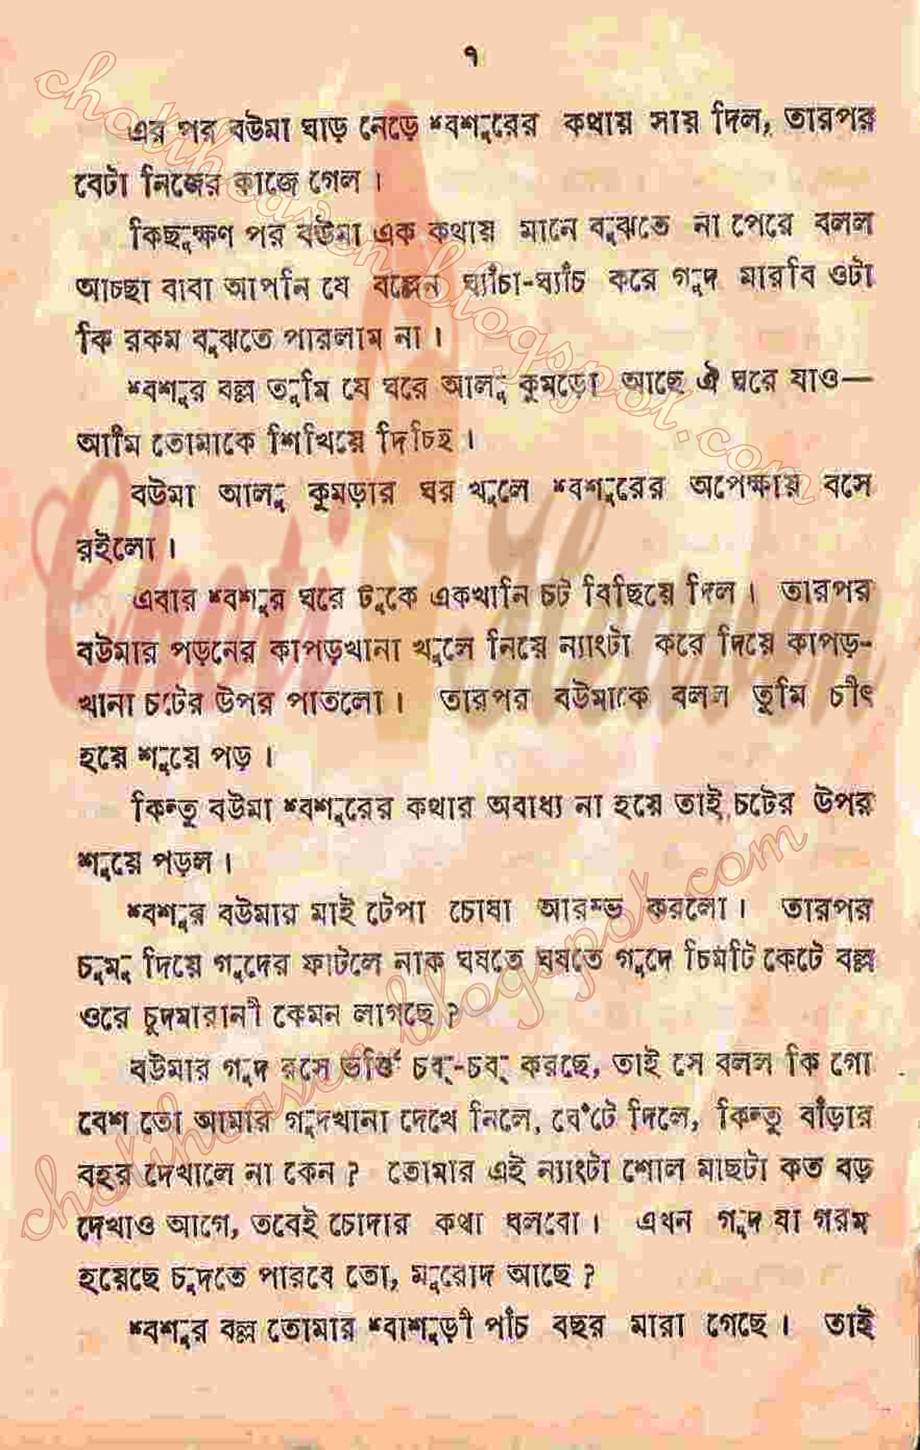 ৭
এর পর বউমা ঘাড় নেড়ে শ্বশুরের কথায় সায় দিল, তারপর
বেটা নিজের কাজে গেল।
কিছুক্ষণ পর বউমা এক কথায় মানে বুঝতে না পেরে বলল
আচ্ছা বাবা আপনি যে বল্লেন ঘ্যাঁচা-ঘ্যাঁচ করে গুদ মারবি ওটা
কি রকম বুঝতে পারলাম না।
শ্বশুর বল্ল তুমি যে ঘরে আলু কুমড়ো আছে ঐ ঘরে যাও—
আমি তোমাকে শিখিয়ে দিচ্ছি।
বউমা আলু কুমড়ার ঘর খুলে শ্বশুরের অপেক্ষায় বসে
রইলো।
এবার শ্বশুর ঘরে ঢুকে একখানি চট বিছিয়ে দিল। তারপর
বউমার পড়নের কাপড়খানা খুলে নিয়ে ন্যাংটা করে দিয়ে কাপড়-
খানা চটের উপর পাতলো। তারপর বউমাকে বলল তুমি চীৎ
হয়ে শুয়ে পড়।
কিন্তু বউমা শ্বশুরের কথার অবাধ্য না হয়ে তাই চটের উপর
শুয়ে পড়ল।
শ্বশুর বউমার মাই টেপা চোষা আরম্ভ করলো। তারপর
চুমু দিয়ে গুদের ফাটলে নাক ঘষতে ঘষতে গুদে চিমটি কেটে বল্ল
ওরে চুদমারানী কেমন লাগছে?
বউমার গুদ রসে ভর্ত্তি চব্-চব্ করছে, তাই সে বলল কি গো
বেশ তো আমার গুদখানা দেখে নিলে, ঘেঁটে দিলে, কিন্তু বাঁড়ার
বহর দেখালে না কেন? তোমার এই ন্যাংটা শোল মাছটা কত বড়
দেখাও আগে, তবেই চোদার কথা বলবো। এখন গুদ যা গরম
হয়েছে চুদতে পারবে তো, মুরোদ আছে?
শ্বশুর বল্ল তোমার শ্বাশুড়ী পাঁচ বছর মারা গেছে। তাই
chotiheaven.blogspot.com
Choti Heaven
chotiheaven.blogspot.com